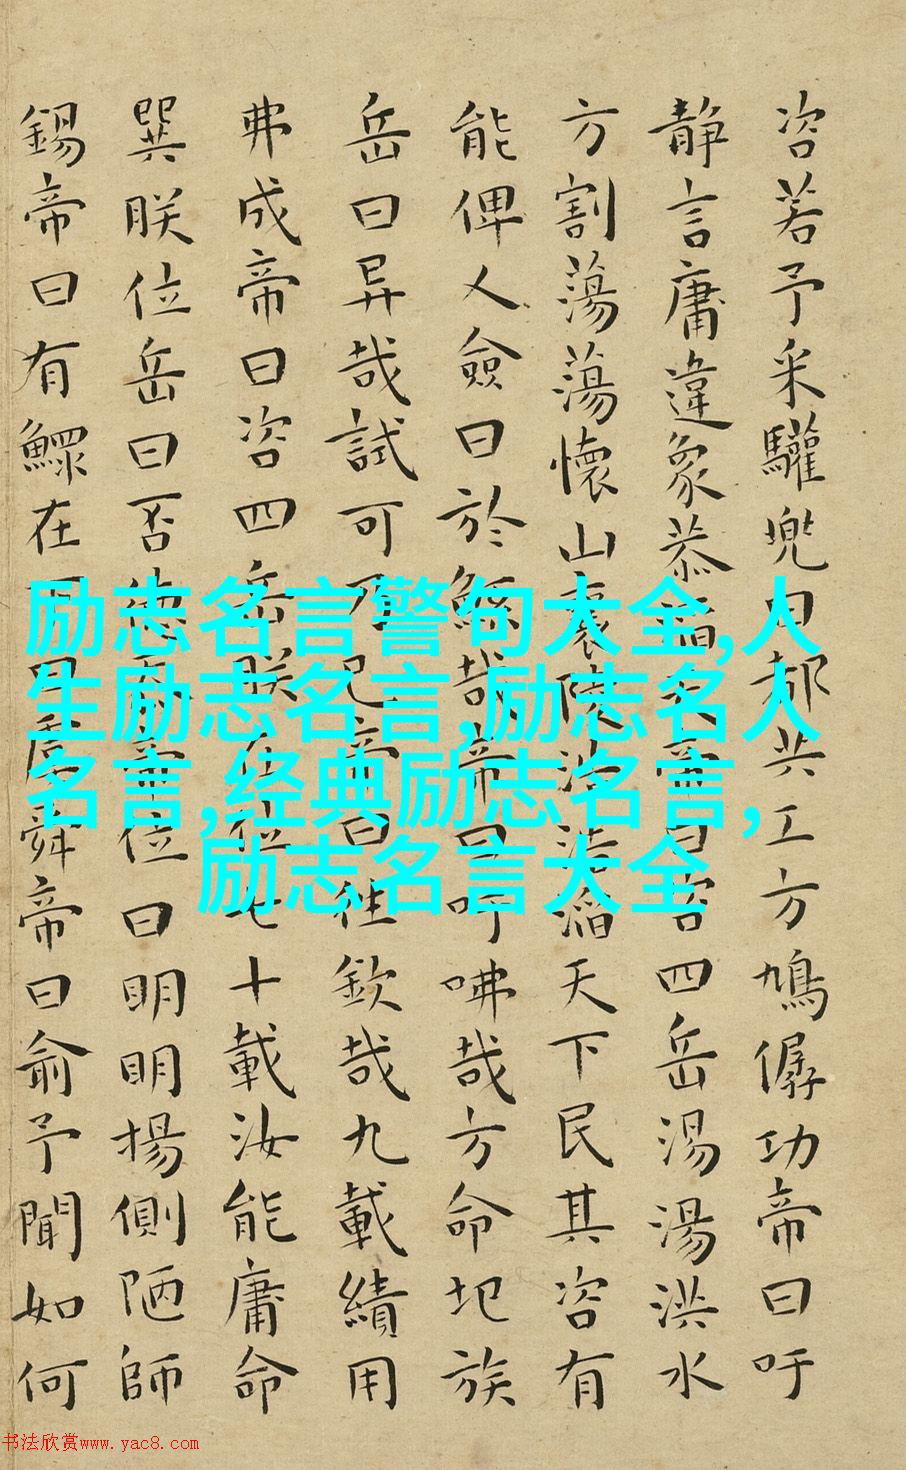 咨若予采驩兜曰都共工方鳩僝功帝曰吁
静言庸違象恭滔天帝曰咨四岳湯湯洪水
方割蕩蕩懷山襄陵浩浩滔天下民其咨有
能俾乂僉曰於鯀哉帝曰吁咈哉方命圮族
岳曰异哉試可乃已帝曰往欽哉九載績用
弗成帝曰咨四岳朕在位七十載汝能庸命
巽朕位岳曰否德忝帝位曰明明揚側陋師
錫帝曰有鰥在下曰虞舜帝曰俞予聞如何
励志名言警句大全,人
生励志名言,励志名人
名言,经典励志名言,
励志名言大全
书法欣赏www.yac8.com